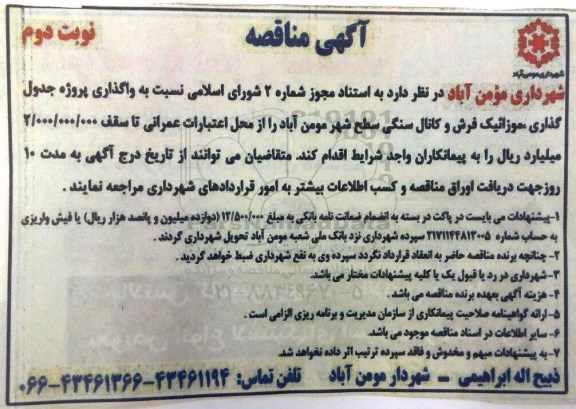 آگهی مناقصه
نوبت دوم
شهرداری مومن آباد
شهرداری مؤمن آباد در نظر دارد به استناد مجوز شماره ۲ شورای اسلامی نسبت به واگذاری پروژه جدول
گذاری ،موزائیک فرش و کانال سنگی سطح شهر مومن آباد را از محل اعتبارات عمرانی تا سقف ۲/۰۰۰/۰۰۰/۰۰۰
میلیارد ریال را به پیمانکاران واجد شرایط اقدام کند. متقاضیان می توانند از تاریخ درج آگهی به مدت ۱۰
روزجهت دریافت اوراق مناقصه و کسب اطلاعات بیشتر به امور قراردادهای شهرداری مراجعه نمایند .
۱-پیشنهادات می بایست در پاکت در بسته به انضمام ضمانت نامه بانکی به مبلغ ۱۲/۵۰۰/۰۰۰ (دوازده میلیون و پانصد هزار ریال) یا فیش واریزی
به حساب شماره ۲۱۷۱۱۴۴۸۱۳۰۰۵ سپرده شهرداری نزد بانک ملی شعبه مومن آباد تحویل شهرداری گردند .
۲-چنانچه برنده مناقصه حاضر به انعقاد قرارداد نگردد سپرده وی به نفع شهرداری ضبط خواهد گردید .
۳-شهرداری در رد یا قبول یک یا کلیه پیشنهادات مختار می باشد.
۴- هزینه آگهی بعهده برنده مناقصه می باشد .
۵-ارائه گواهینامه صلاحیت پیمانکاری از سازمان مدیریت و برنامه ریزی الزامی است .
۶- سایر اطلاعات در اسناد مناقصه موجود می باشد.
۷- به پیشنهادات مبهم و مخدوش و فاقد سپرده ترتیب اثر داده نخواهد شد.
ذبیح اله ابراهیمی – شهردار مومن آباد تلفن تماس: ۴۳۴۶۱۱۹۴-۴۳۴۶۱۳۶۶-۰۶۶